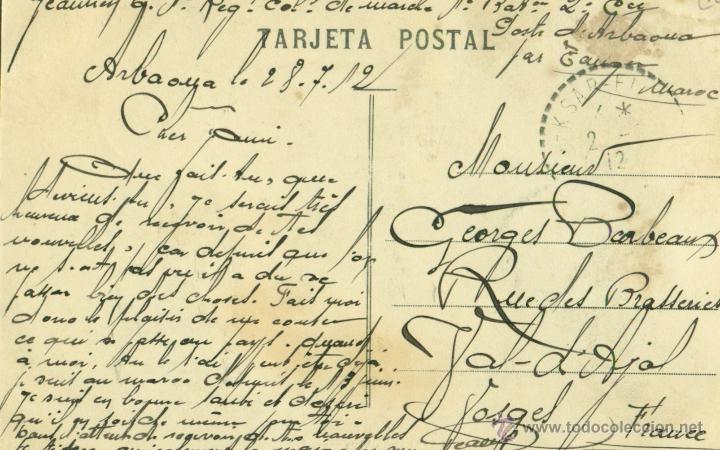 Jeannin g. 1er Regt Colal de marche 1er Baton 2e Cie
Poste d'Arbaoua
par Tanger
Maroc
TARJETA POSTAL
Arbaoua le 28.7.12
Cher ami.
Que fais-tu, que
deviens-tu, je serais très
heureux de recevoir de tes
nouvelles, car depuis que l'on
ne s'est pas vu il a du se
passer bien des choses. Fais moi
donc le plaisir de me conter
ce qui se passe au pays. Quand
à moi, tu le sais
je suis au maroc depuis le juin.
Je suis en bonne santé et désire
qu'il en soit de même pour toi
Dans l'attente de recevoir de tes nouvelles
KSAR-EL
2
12
Monsieur
Georges Barbeaux
Rue des Brasseries
Val-d'Ajol
Vosges
France
todocoleccion.net